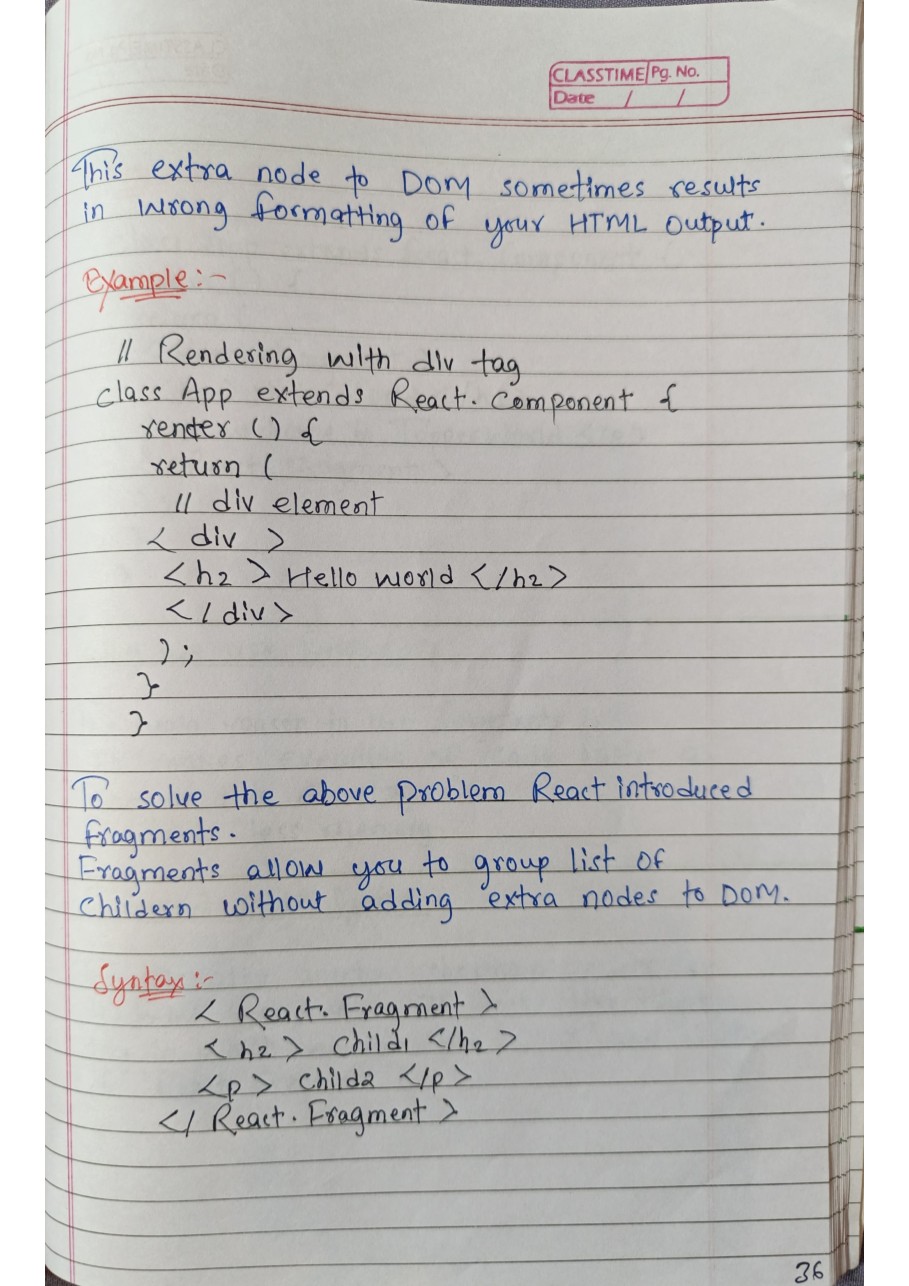 CLASSTIME Pg. No.
Date / /
This extra node to DOM sometimes results
in wrong formatting of your HTML output.
Example :-
// Rendering with div tag
class App extends React. Component {
render () {
return (
// div element
< div >
<h2 > Hello world </h2>
</ div>
);
}
}
To solve the above problem React introduced
fragments.
Fragments allow you to group list of
Childern without adding extra nodes to DOM.
Syntax :-
< React. Fragment >
<h2 > Child1 </h2 >
<p> Child2 </p>
</ React. Fragment >
36